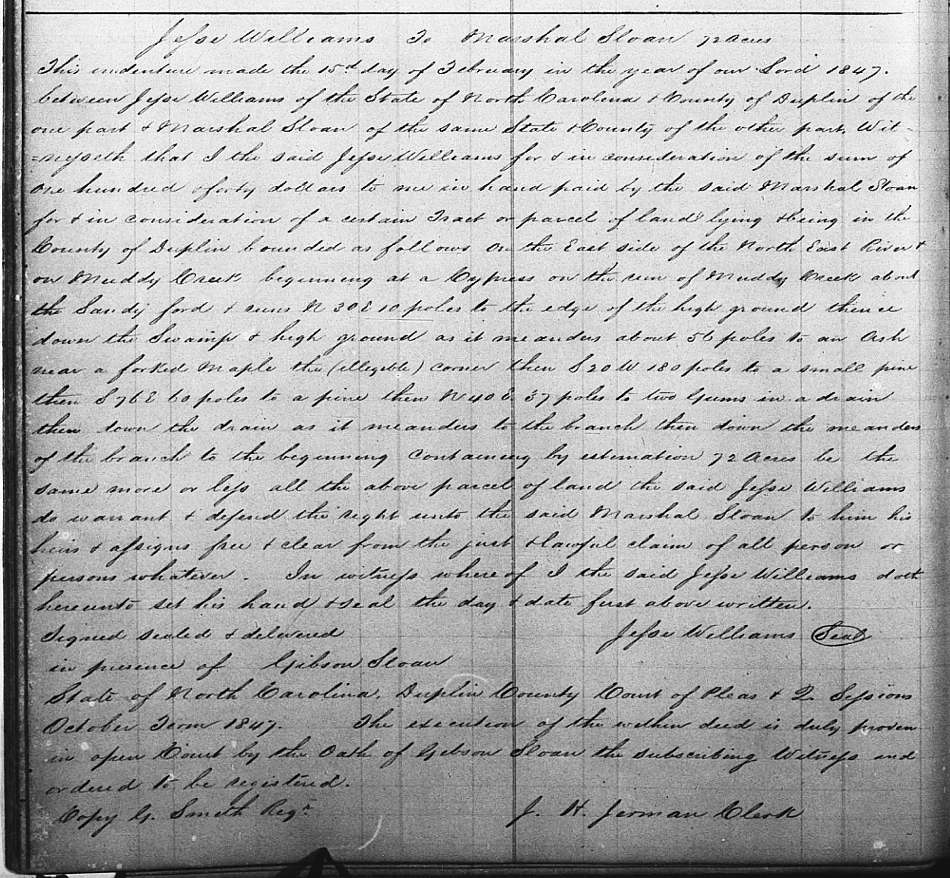 Jesse Williams To Marshal Sloan 72 Acres
This indenture made the 15th day of February in the year of our Lord 1847.
between Jesse Williams of the State of North Carolina & County of Duplin of the
one part & Marshal Sloan of the same State & County of the other part, Wit-
=nesseth that I the said Jesse Williams for & in consideration of the sum of
one hundred & forty dollars to me in hand paid by the said Marshal Sloan
for & in consideration of a certain Tract or parcel of land lying & being in the
County of Duplin bounded as follows on the East side of the North East River &
on Muddy Creek beginning at a Cypress on the run of Muddy Creek about
the Sandy ford & runs N 30 E 10 poles to the edge of the high ground thence
down the Swamp & high ground as it meanders about 56 poles to an Ash
near a forked Maple the (illegible) corner then S 20 W 180 poles to a small pine
then S 76 E 60 poles to a pine then N 40 E 37 poles to two Gums in a drain
then down the drain as it meanders to the branch then down the meanders
of the branch to the beginning Containing by estimation 72 Acres be the
same more or less all the above parcel of land the said Jesse Williams
do warrant & defend the right unto the said Marshal Sloan to him his
heirs & assigns free & clear from the just & lawful claim of all person or
persons whatever. In witness where of I the said Jesse Williams doth
hereunto set his hand & seal the day & date first above written.
Signed sealed & delivered Jesse Williams Seal
in presence of Gibson Sloan
State of North Carolina, Duplin County Court of Pleas & Q. Sessions
October Term 1847. The execution of the within deed is duly proven
in open Court by the Oath of Gibson Sloan the subscribing Witness and
ordered to be registered.
Copy G. Smith Regr J. H. Jerman Clerk